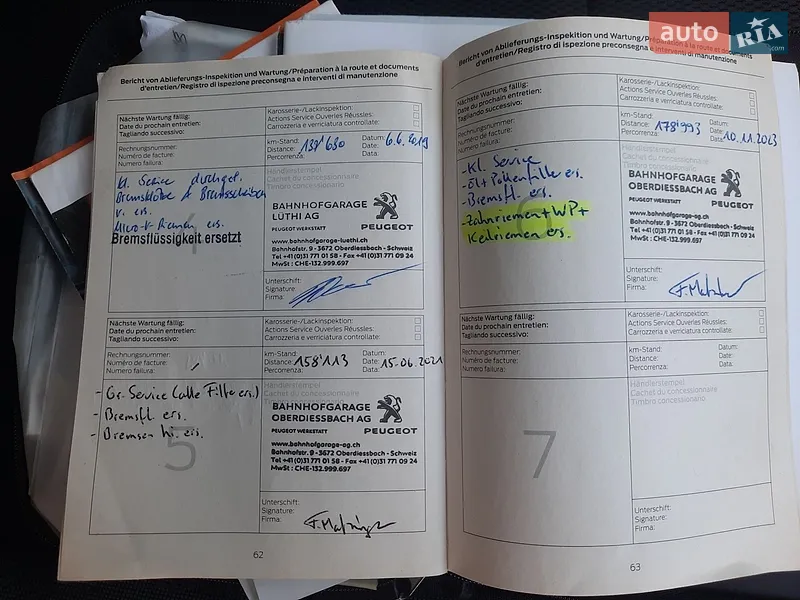 Bericht von Ablieferungs-Inspektion und Wartung/Préparation à la route et documents
d'entretien/Registro di ispezione preconsegna e interventi di manutenzione
Nächste Wartung fällig:
Date du prochain entretien:
Tagliando successivo:
Karosserie-/Lackinspektion:
Actions Service Ouveries Réussles:
Carrozzeria e verniciatura controllate:
Rechnungsnummer:
Numéro de facture:
Numero failura:
km-Stand:
Distance: 138'680
Percorrenza:
Datum:
Date: 6.6.2019
Data:
Kl. Service durchgef.
Bremsklötze + Bremsscheiben
v. ers.
Micro-V-Riemen ers.
Bremsflüssigkeit ersetzt
4
Händlerstempel
Cachet du concessionnaire
Timbro concessionario
BAHNHOFGARAGE
LÜTHI AG
PEUGEOT
www.bahnhofgarage-luethi.ch
Bahnhofstr. 9 - 3672 Oberdiessbach - Schweiz
Tel +41(0)31 771 01 58 - Fax +41(0)31 770 09 24
MwSt : CHE-132.999.697
Unterschift:
Signature:
Firma:
Nächste Wartung fällig:
Date du prochain entretien:
Tagliando successivo:
Karosserie-/Lackinspektion:
Actions Service Ouveries Réussles:
Carrozzeria e verniciatura controllate:
Rechnungsnummer:
Numéro de facture:
Numero failura:
km-Stand:
Distance: 158'113
Percorrenza:
Datum:
Date: 15.06.2021
Data:
- Gr. Service (alle Filter ers.)
- Bremsfl. ers.
- Bremsen hi. ers.
5
Händlerstempel
Cachet du concessionnaire
Timbro concessionario
BAHNHOFGARAGE
OBERDIESSBACH AG
PEUGEOT WERKSTATT
PEUGEOT
www.bahnhofgarage-ag.ch
Bahnhofstr. 9 - 3672 Oberdiessbach - Schweiz
Tel +41(0)31 771 01 58 - Fax +41(0)31 771 09 24
MwSt : CHE-132.999.697
Unterschift:
Signature:
Firma:
62
Bericht von Ablieferungs-Inspektion und Wartung/Préparation à la route et documents
d'entretien/Registro di ispezione preconsegna e interventi di manutenzione
Nächste Wartung fällig:
Date du prochain entretien:
Tagliando successivo:
Karosserie-/Lackinspektion:
Actions Service Ouveries Réussles:
Carrozzeria e verniciatura controllate:
Rechnungsnummer:
Numéro de facture:
Numero failura:
km-Stand:
Distance: 178'993
Percorrenza:
Datum:
Date: 10.11.2023
Data:
- Kl. Service
- Öl + Pollenfilter ers.
- Bremsfl. ers.
- Zahnriemen + WP +
Keilriemen ers.
6
Händlerstempel
Cachet du concessionnaire
Timbro concessionario
BAHNHOFGARAGE
OBERDIESSBACH AG
PEUGEOT WERKSTATT
PEUGEOT
www.bahnhofgarage-ag.ch
Bahnhofstr. 9 - 3672 Oberdiessbach - Schweiz
Tel +41(0)31 771 01 58 - Fax +41(0)31 771 09 24
MwSt : CHE-132.999.697
Unterschift:
Signature:
Firma:
Nächste Wartung fällig:
Date du prochain entretien:
Tagliando successivo:
Karosserie-/Lackinspektion:
Actions Service Ouveries Réussles:
Carrozzeria e verniciatura controllate:
Rechnungsnummer:
Numéro de facture:
Numero failura:
km-Stand:
Distance:
Percorrenza:
Datum:
Date:
Data:
7
Händlerstempel
Cachet du concessionnaire
Timbro concessionario
Unterschift:
Signature:
Firma:
63
auto RIA .com